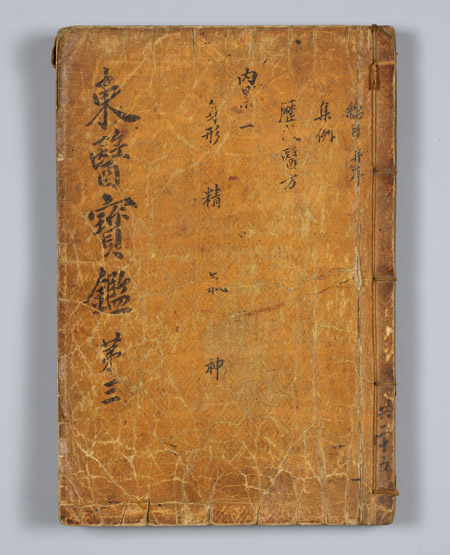 總目 并序
集例
歷代醫方
內景一
身形 精 氣 神
東醫寶鑑 苐三
共二十五